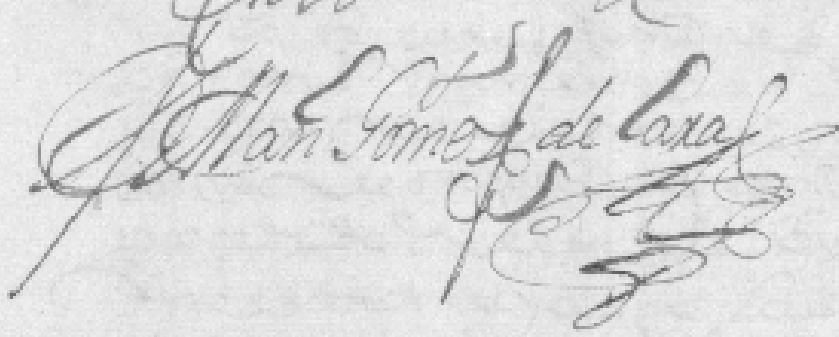 Man Gomez de Lara